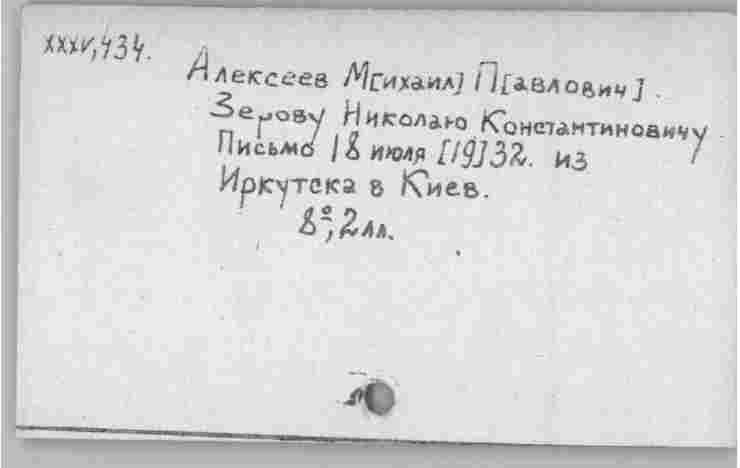 XXXV,434.
Алексеев М[ихаил] П[авлович].
Зерову Николаю Константиновичу
Письмо 18 июля [19]32. из
Иркутска в Киев.
8°, 2 лл.